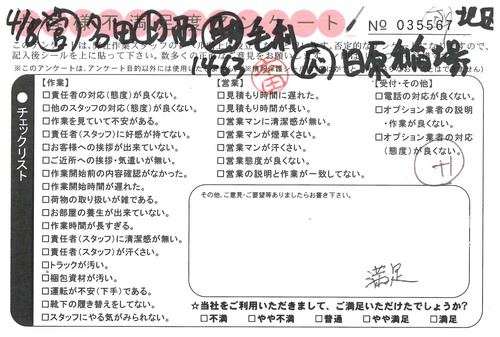 4/8 営 多田 毛利
お客様不満足度アンケート
No 035567
北区
チェックリスト
【作業】
□責任者の対応(態度)が良くない。
□他のスタッフの対応(態度)が良くない。
□作業を見ていて不安がある。
□責任者(スタッフ)に好感が持てない。
□お客様への挨拶が出来ていない。
□ご近所への挨拶・気遣いが無い。
□作業開始前の内容確認がなかった。
□作業開始時間が遅れた。
□荷物の取り扱いが雑である。
□お部屋の養生が出来ていない。
□作業時間が長すぎる。
□責任者(スタッフ)に清潔感が無い。
□責任者(スタッフ)が汗くさい。
□トラックが汚い。
□梱包資材が汚い。
□運転が不安(下手)である。
□靴下の履き替えをしてない。
□スタッフにやる気がみられない。
【営業】
□見積もり時間に遅れた。
□見積もり時間が長い。
□営業マンに清潔感が無い。
□営業マンが煙草くさい。
□営業マンが汗くさい。
□営業態度が良くない。
□営業の説明と作業が一致してない。
【受付・その他】
□電話の対応が良くない。
□オプション業者の説明
・作業が良くない。
□オプション業者の対応
(態度)が良くない。
その他、ご意見・ご要望等ありましたらお書き下さい。
満足
☆当社をご利用いただきまして、ご満足いただけたでしょうか?
□不満 □やや不満 □普通 □やや満足 □満足